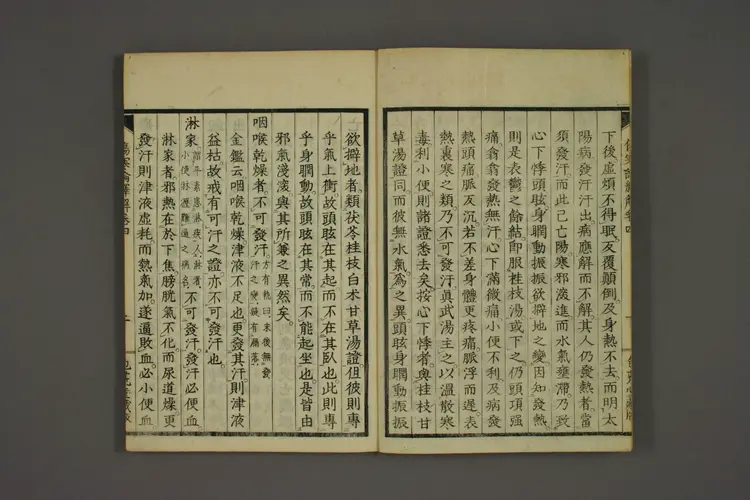 下後虛煩不得眠反覆顛倒及身熱不去而明太
陽病發汗汗出病應解而不解其人仍發熱者當
須發汗而此已亡陽寒邪激進而水氣壅滯乃致
心下悸頭眩身瞤動振振欲擗地之變因知發熱
則是表鬱之餘結即服桂枝湯或下之仍頭項強
痛翕翕發熱無汗心下滿微痛小便不利及病發
熱頭痛脈反沉若不差身體更疼痛脈浮而遲表
熱裏寒之類乃不可發汗眞武湯主之以溫散寒
毒利小便則諸證悉去矣按心下悸者與桂枝甘
草湯證同而彼無水氣爲之異頭眩身瞤動振振
欲擗地者類茯苓桂枝白朮甘草湯證但彼則專
乎氣上衝故頭眩在其起而不在其臥也此則專
乎身瞤動故頭眩在其常而不能起坐也是皆由
邪氣淺深與其所兼之異然矣
咽喉乾燥者不可發汗方有執曰末後無發汗之變疑有脫落
金鑑云咽喉乾燥津液不足也更發其汗則津液
益枯故戒有可汗之證亦不可發汗也
淋家不可發汗發汗必便血
淋家者邪熱在於下焦膀胱氣不化而尿道燥更
發汗則津液虛耗而熱氣加遂逼敗血必小便血
傷寒論繹解卷四